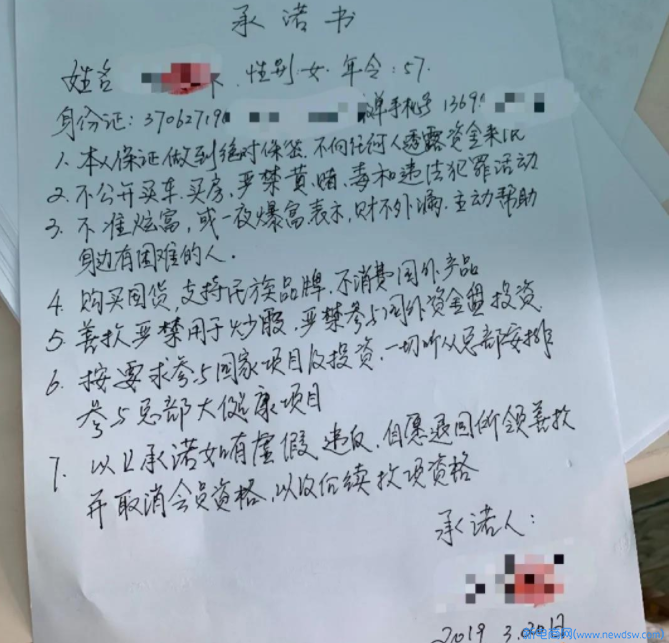 承诺书
姓名 性别:女.年令:57.
身份证:37062719 单手机号1369
1.本人保证做到绝对保签.不向任何人透露资金来沅
2.不公开买车.买房,严禁黄,赌,毒和违法犯罪活动
3.不准炫富,或一夜爆富表示,财不外漏.主动帮助
身边有困难的人.
4.购买国货,支持民族品牌.不消费国外产品
5.善款严禁用于炒股.严禁参与国外资金盘投资
6.按要求参与国家项目及投资.一切听从总部安排
参与总部大健康项目
7.以上承诺如有虚假违反.自愿退回所领善款
并取消会员资格,以及后续款项资格
承诺人:
2019 3.20日
电商网(www.newdsw.com)